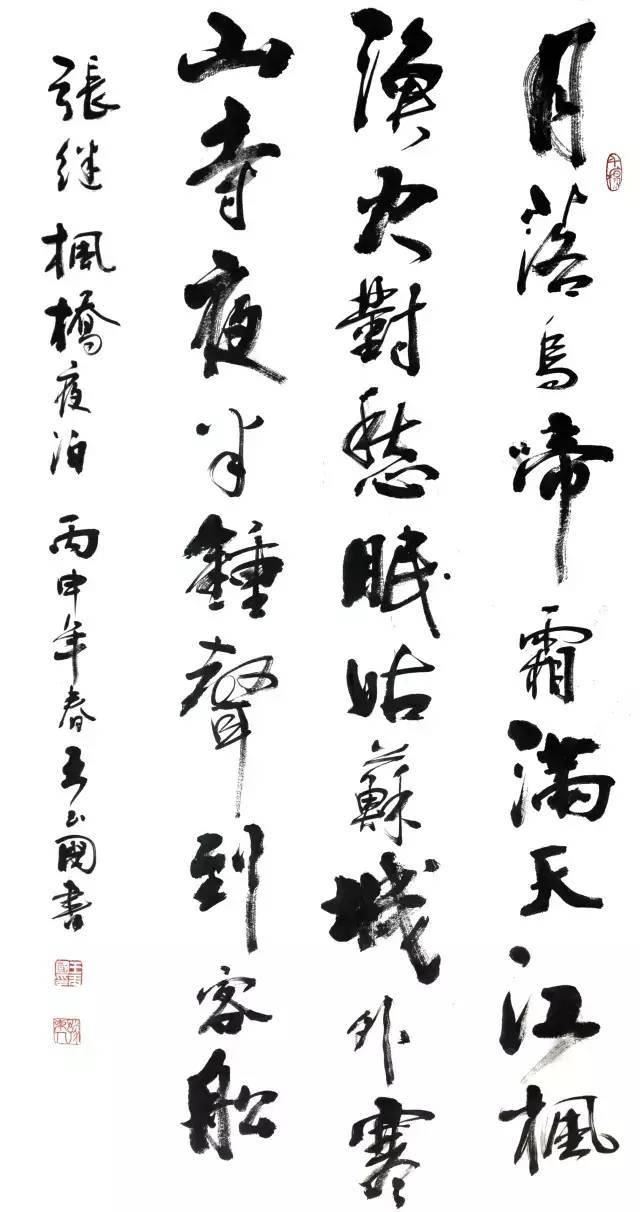 月落烏啼霜滿天江楓
漁火對愁眠姑蘇城外寒
山寺夜半鍾聲到客船
張継 楓橋夜泊 丙申年春王玉國書